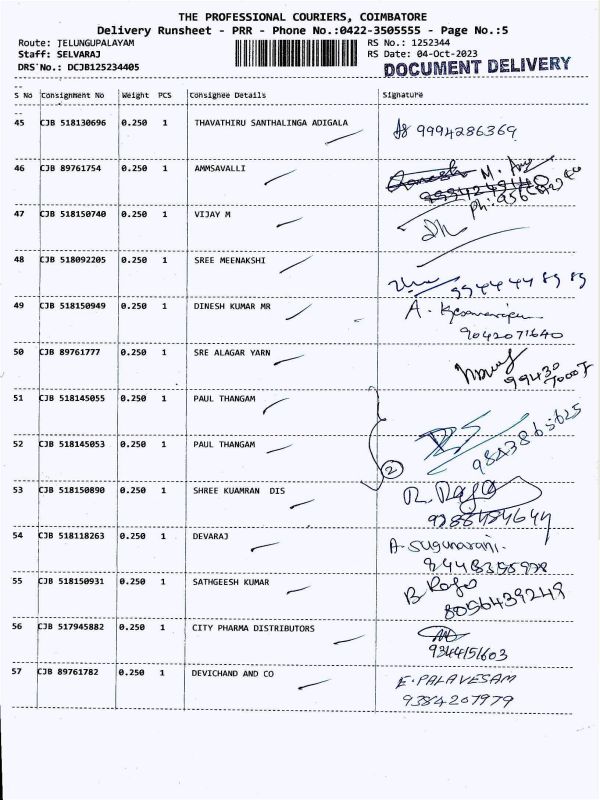 THE PROFESSIONAL COURIERS, COIMBATORE
Delivery Runsheet - PRR - Phone No.:0422-3505555 - Page No.:5
Route: TELUNGUPALAYAM RS No.: 1252344
Staff: SELVARAJ RS Date: 04-Oct-2023
DRS No.: DCJB125234405 DOCUMENT DELIVERY
S No Consignment No Weight PCS Consignee Details Signature
45 CJB 518130696 0.250 1 THAVATHIRU SANTHALINGA ADIGALA
9994286369
46 CJB 89761754 0.250 1 AMMSAVALLI
47 CJB 518150740 0.250 1 VIJAY M
48 CJB 518092205 0.250 1 SREE MEENAKSHI
9944448989
49 CJB 518150949 0.250 1 DINESH KUMAR MR
9042071640
50 CJB 89761777 0.250 1 SRE ALAGAR YARN
51 CJB 518145055 0.250 1 PAUL THANGAM
52 CJB 518145053 0.250 1 PAUL THANGAM
9843865625
2
53 CJB 518150890 0.250 1 SHREE KUAMRAN DIS R. Raja
54 CJB 518118263 0.250 1 DEVARAJ A. Sugunarani.
55 CJB 518150931 0.250 1 SATHGEESH KUMAR B Raja
8056439249
56 CJB 517945882 0.250 1 CITY PHARMA DISTRIBUTORS
9344151603
57 CJB 89761782 0.250 1 DEVICHAND AND CO E. PALAVESAM
9384207979